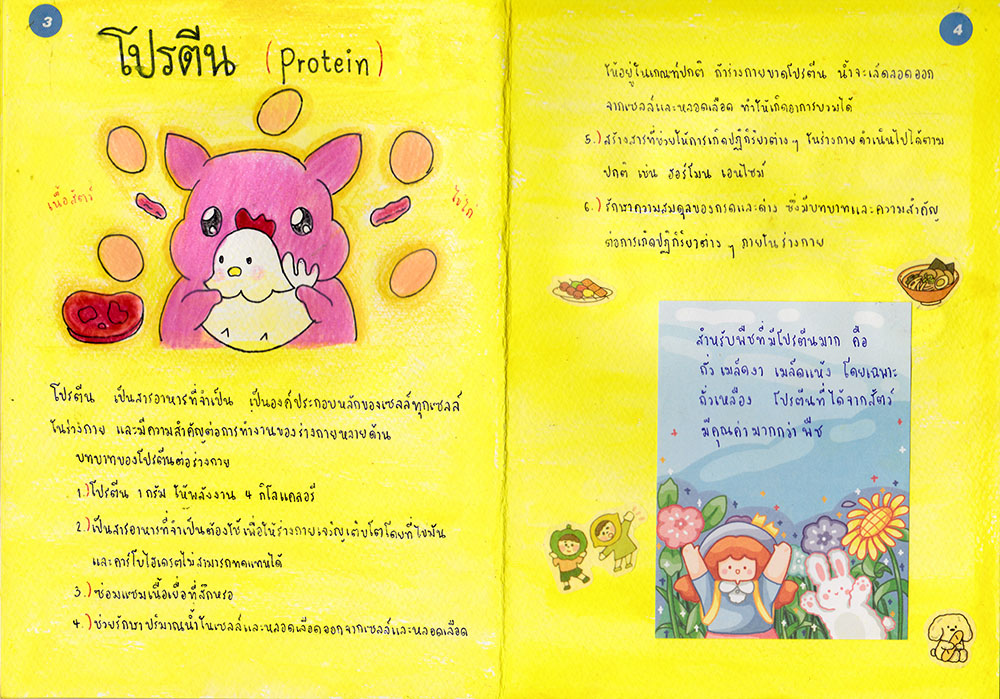 3
โปรตีน (Protein)
เนื้อสัตว์
ไข่ไก่
โปรตีน เป็นสารอาหารที่จำเป็น เป็นองค์ประกอบหลักของเซลล์ทุกเซลล์
ในร่างกาย และมีความสำคัญต่อการทำงานของร่างกายหลายด้าน
บทบาทของโปรตีนต่อร่างกาย
1.) โปรตีน 1 กรัม ให้พลังงาน 4 กิโลแคลอรี
2.) เป็นสารอาหารที่จำเป็นต้องใช้เพื่อให้ร่างกายเจริญเติบโตโดยที่ไขมัน
และคาร์โบไฮเดรตไม่สามารถทดแทนได้
3.) ซ่อมแซมเนื้อเยื่อที่สึกหรอ
4.) ช่วยรักษาปริมาณน้ำในเซลล์และหลอดเลือดออกจากเซลล์และหลอดเลือด
4
ให้อยู่ในเกณฑ์ปกติ ถ้าร่างกายขาดโปรตีน น้ำจะเล็ดลอดออก
จากเซลล์และหลอดเลือด ทำให้เกิดอาการบวมได้
5.) สร้างสารที่ช่วยให้การเกิดปฏิกิริยาต่าง ๆ ในร่างกายดำเนินไปได้ตาม
ปกติ เช่น ฮอร์โมน เอนไซม์
6.) รักษาความสมดุลของกรดและด่าง ซึ่งมีบทบาทและความสำคัญ
ต่อการเกิดปฏิกิริยาต่าง ๆ ภายในร่างกาย
สำหรับพืชที่มีโปรตีนมาก คือ
ถั่ว เมล็ดงา เมล็ดแห้ง โดยเฉพาะ
ถั่วเหลือง โปรตีนที่ได้จากสัตว์
มีคุณค่ามากกว่าพืช